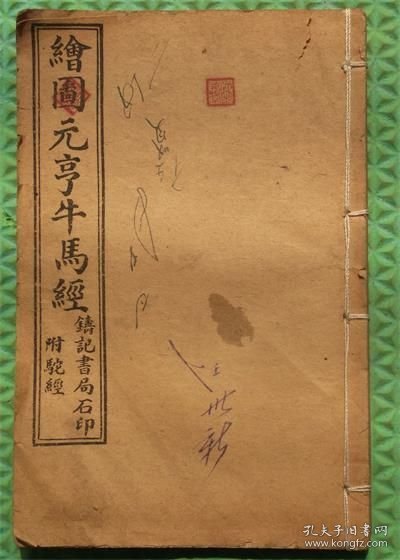 繪圖元亨牛馬經
鑄記書局石印
附駝經
孔夫子旧书网
www.kongfz.com